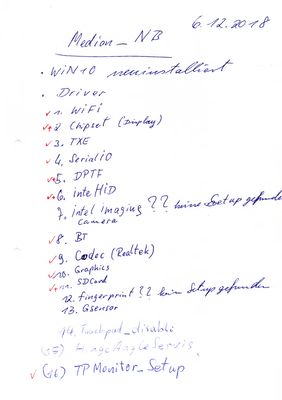 6.12.2018
Medion_NB
• WiN10 neuinstalliert
• Driver
✓ 1. WiFi
✓ 2. Chipset (Display)
✓ 3. TXE
✓ 4. SerialIO
✓ 5. DPTF
✓ 6. intelHiD
7. intel imaging ?? keine Setup gefunden
camera
✓ 8. BT
✓ 9. Codec (Realtek)
✓ 10. Graphics
✓ 11. SDCard
12. Fingerprint ?? kein Setup gefunden
13. Gsensor
14. Touchpad_disable
(15) HingeAngleServis
✓ (16) TPMonitor_Setup